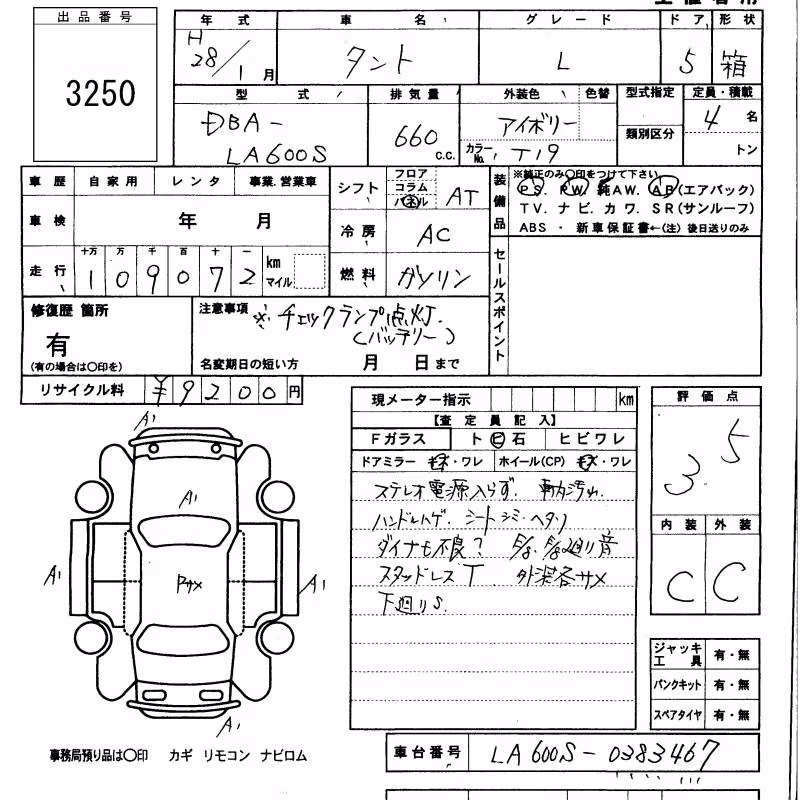 出品番号
3250
年式 車名 グレード ドア 形状
H
28/1月 タント L 5 箱
型式 排気量 外装色 色替 型式指定 定員・積載
DBA-
LA600S
660 c.c.
アイボリー
カラーNo. T19
類別区分
4名
トン
車歴 自家用 レンタ 事業.営業車
車検 年 月
走行 十万 万 千 百 十 一
1 0 9 0 7 2 km マイル
シフト フロア コラム パネル AT
冷房 AC
燃料 ガソリン
装備品
※純正のみ〇印をつけて下さい
PS. PW. 純AW. AB(エアバック)
TV.ナビ.カワ.SR(サンルーフ)
ABS ・ 新車保証書←(注)後日送りのみ
セールスポイント
修復歴 箇所
有
(有の場合は〇印を)
注意事項
※チェックランプ点灯.
(バッテリー)
名変期日の短い方 月 日まで
リサイクル料 ¥9200円
現メーター指示 km
【査定員記入】
Fガラス ト ビ 石 ヒビワレ
ドアミラー キズ・ワレ ホイール(CP) キズ・ワレ
ステレオ電源入らず. 車内汚れ.
ハンドルハゲ. シートシミ・ヘタリ
ダイナモ不良? F/8. R/8廻り音
スタッドレスT 外装各サメ
下廻りS.
評価点
3.5
内装 外装
C C
ジャッキ工具 有・無
パンクキット 有・無
スペアタイヤ 有・無
A1
A1
A1
Pサメ
A1
A1
事務局預り品は〇印 カギ リモコン ナビロム
車台番号 LA600S-0383467